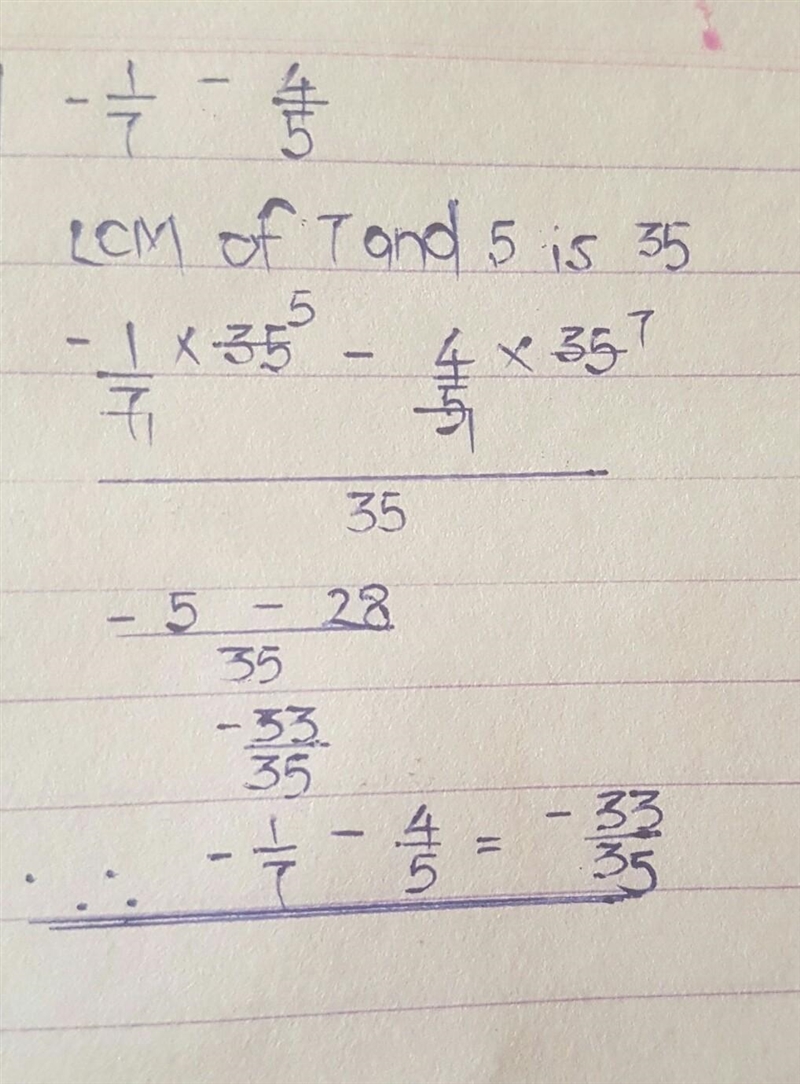 -1/7 - 4/5
LCM of 7 and 5 is 35
-1/7 1 × 35 5 - 4/5 1 × 35 7
35
- 5 - 28
35
-33
35
∴ -1/7 - 4/5 = -33/35